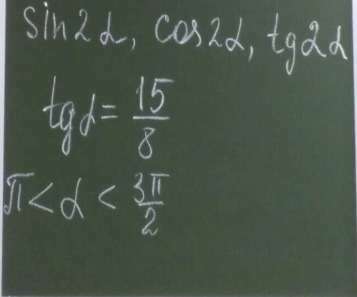 sin2α, cos2α, tg2α
tgα = 15/8
π < α < 3π/2